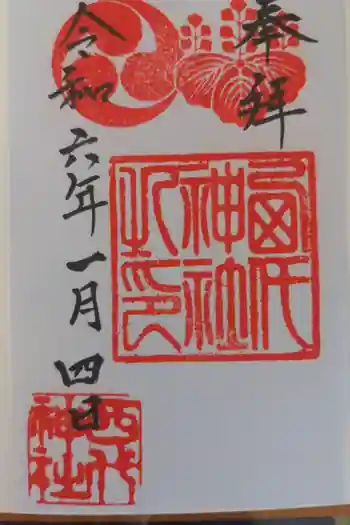 奉拝
令和六年一月四日
神社
之印
四代
神社